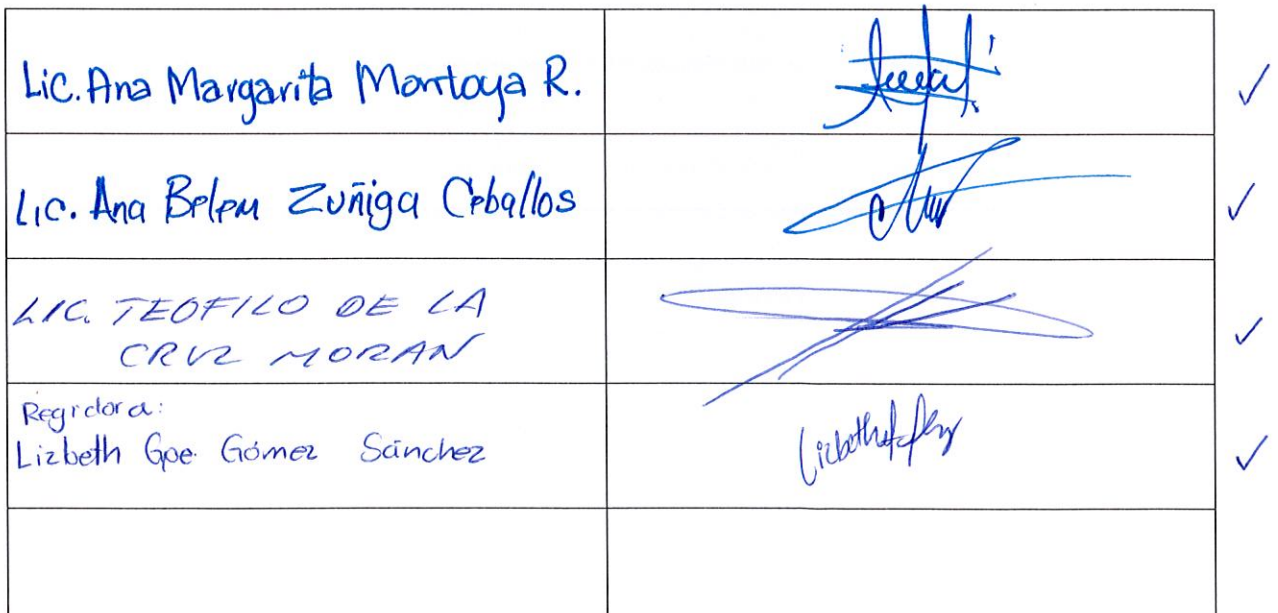 Lic. Ana Margarita Montoya R.
Lic. Ana Belem Zuñiga Ceballos
LIC. TEOFILO DE LA
CRUZ MORAN
Regidora:
Lizbeth Gpe. Gómez Sánchez